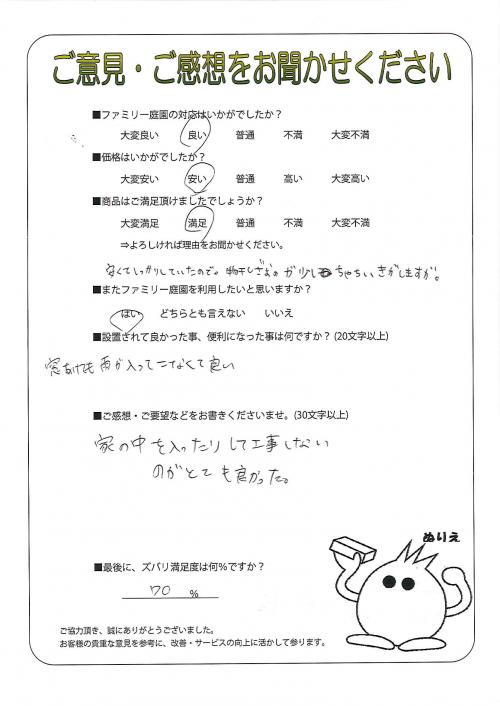 ご意見・ご感想をお聞かせください
■ファミリー庭園の対応はいかがでしたか？
大変良い 良い 普通 不満 大変不満
■価格はいかがでしたか？
大変安い 安い 普通 高い 大変高い
■商品はご満足頂けましたでしょうか？
大変満足 満足 普通 不満 大変不満
⇒よろしければ理由をお聞かせください。
安くてしっかりしていたので。物干しざおのが少しちゃちいきがしますが。
■またファミリー庭園を利用したいと思いますか？
はい どちらとも言えない いいえ
■設置されて良かった事、便利になった事は何ですか？ (20文字以上)
窓あけても雨が入ってこなくて良い
■ご感想・ご要望などをお書きくださいませ。(30文字以上)
家の中を入ったりして工事しない
のがとても良かった。
ぬりえ
■最後に、ズバリ満足度は何％ですか？
70 %
ご協力頂き、誠にありがとうございました。
お客様の貴重な意見を参考に、改善・サービスの向上に活かして参ります。